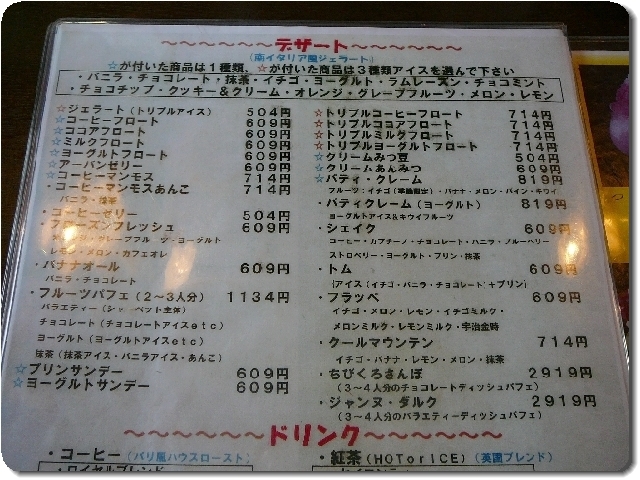 ～～～～～～デザート～～～～～～
(南イタリア風ジェラート)
☆が付いた商品は1種類、☆が付いた商品は3種類アイスを選んで下さい
・バニラ・チョコレート・抹茶・イチゴ・ヨーグルト・ラムレーズン・チョコミント
・チョコチップ・クッキー&クリーム・オレンジ・グレープフルーツ・メロン・レモン
☆ジェラート(トリプルアイス) 504円
☆コーヒーフロート 609円
☆ココアフロート 609円
☆ミルクフロート 609円
☆ヨーグルトフロート 609円
☆アーバンゼリー 609円
☆コーヒーマンモス 714円
・コーヒーマンモスあんこ 714円
バニラ・抹茶
・コーヒーゼリー 504円
・フローズンフレッシュ 609円
グレープフルーツ・ヨーグルト
レモン・メロン・カフェオレ
・バナナオール 609円
バニラ・チョコレート
・フルーツパフェ(2～3人分) 1134円
バラエティー(シャーベット主体)
チョコレート(チョコレートアイスetc)
ヨーグルト(ヨーグルトアイスetc)
抹茶(抹茶アイス・バニラアイス・あんこ)
☆プリンサンデー 609円
☆ヨーグルトサンデー 609円
☆トリプルコーヒーフロート 714円
☆トリプルココアフロート 714円
☆トリプルミルクフロート 714円
☆トリプルヨーグルトフロート 714円
☆クリームみつ豆 504円
☆クリームあんみつ 609円
☆パティ・クレーム 819円
フルーツ：イチゴ(季節限定)・バナナ・メロン・パイン・キウイ
・パティクレーム(ヨーグルト) 819円
ヨーグルトアイス&キウイフルーツ
・シェイク 609円
コーヒー・カプチーノ・チョコレート・バニラ・ブルーベリー
ストロベリー・ヨーグルト・プリン・抹茶
・トム 609円
(アイス(イチゴ・バニラ・チョコレート)+プリン)
・フラッペ 609円
イチゴ・メロン・レモン・イチゴミルク・
メロンミルク・レモンミルク・宇治金時
・クールマウンテン 714円
イチゴ・バナナ・レモン・メロン・抹茶
・ちびくろさんぼ 2919円
(3～4人分のチョコレートディッシュパフェ)
・ジャンヌ・ダルク 2919円
(3～4人分のバラエティーディッシュパフェ)
～～～～～～ドリンク～～～～～～
・コーヒー(パリ風ハウスロースト)
・ロイヤルブレンド
・紅茶(HOTorICE)(英国ブレンド)